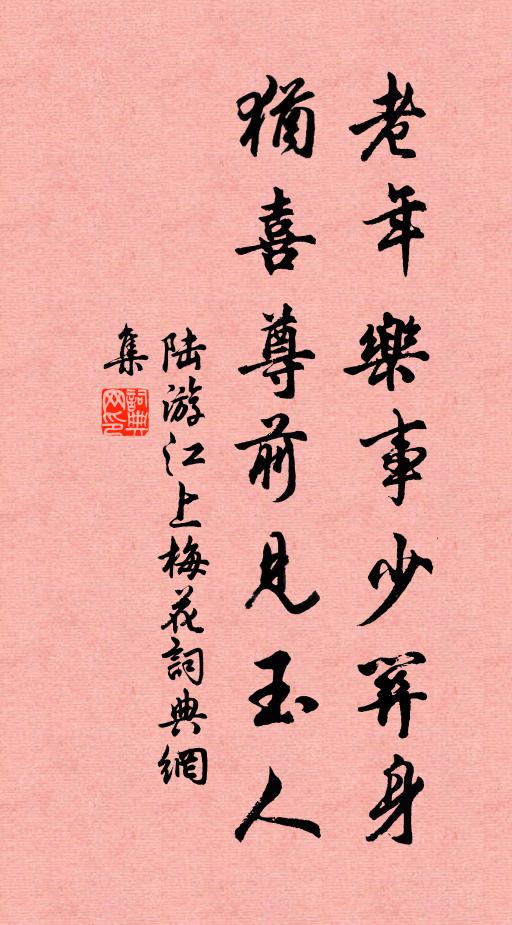 老年樂事少關身
猶喜尊前見玉人
陸游江上梅花詞典網
集
詞典網印